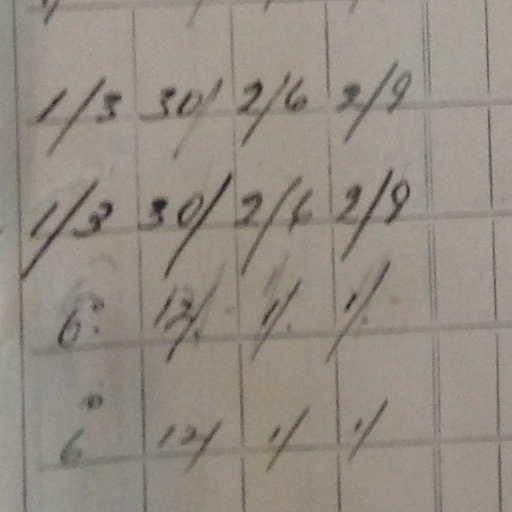 1/3 30/ 2/6 2/9
1/3 30/ 2/6 2/9
6D 12/ 1/ 1/
6D 12/ 1/ 1/